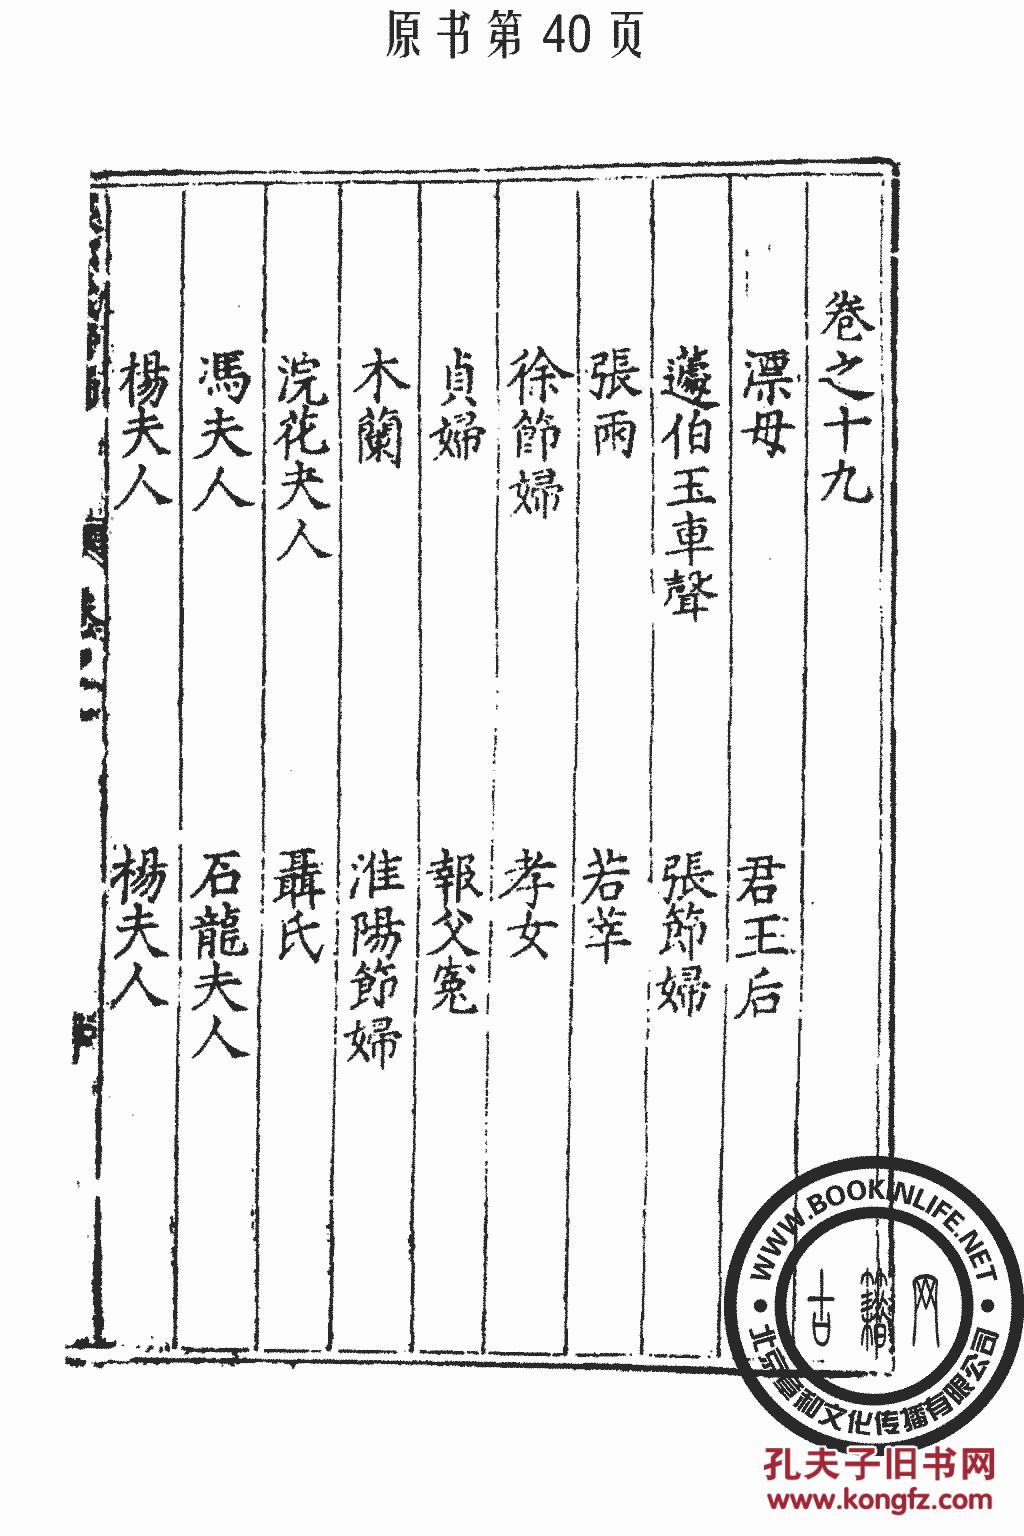 原书第40页
卷之十九
漂母
君王后
蘧伯玉車聲
張節婦
張雨
若莘
徐節婦
孝女
貞婦
報父寃
木蘭
淮陽節婦
浣花夫人
聶氏
馮夫人
石龍夫人
楊夫人
楊夫人
WWW.BOOKINLIFE.NET
古籍网
文化传播有限公司
孔夫子旧书网
www.kongfz.com